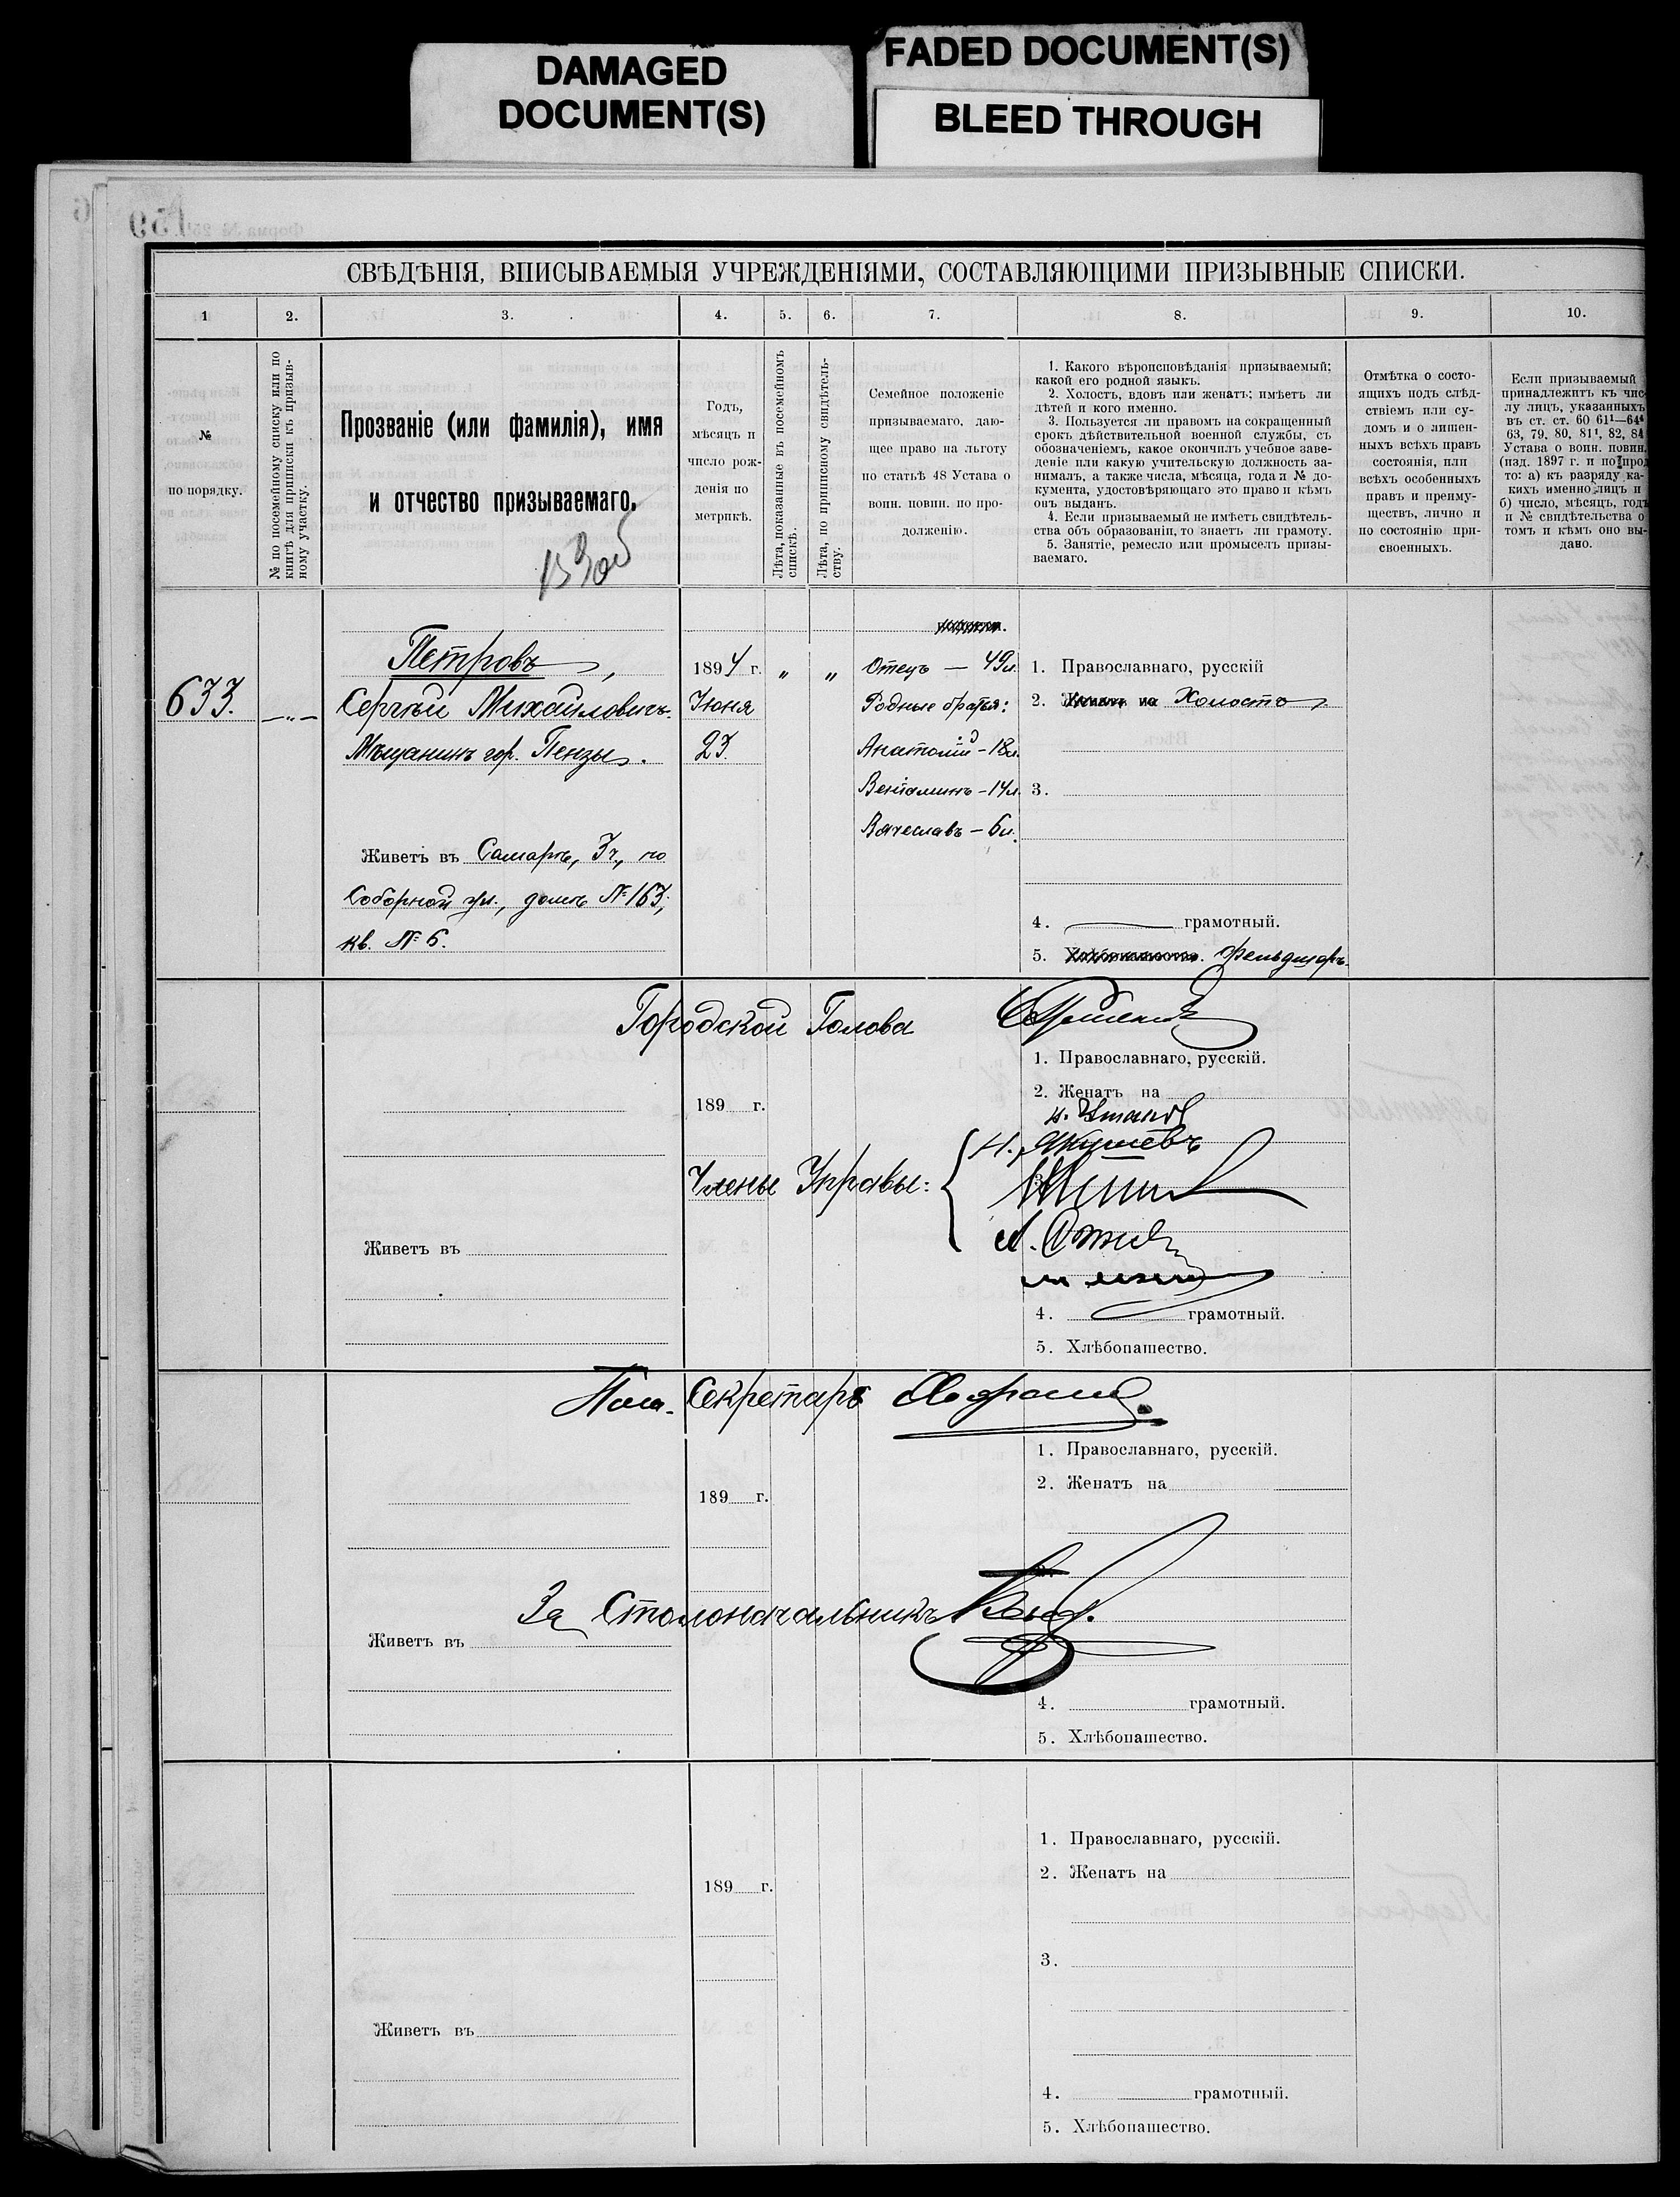 DAMAGED
DOCUMENT(S)
FADED DOCUMENT(S)
BLEED THROUGH
СВѢДѢНІЯ, ВПИСЫВАЕМЫЯ УЧРЕЖДЕНІЯМИ, СОСТАВЛЯЮЩИМИ ПРИЗЫВНЫЕ СПИСКИ.
1 2. 3. 4. 5. 6. 7. 8. 9. 10.
№
по порядку.
№ по посемейному списку или по
книгѣ для приписки къ призыв-
ному участку.
Прозваніе (или фамилія), имя
и отчество призываемаго.
Годъ,
мѣсяцъ и
число рож-
денія по
метрикѣ.
Лѣта, показанные въ посемейномъ
спискѣ.
Лѣта, по приписному свидѣтель-
ству.
Семейное положеніе
призываемаго, даю-
щее право на льготу
по статьѣ 48 Устава о
воин. повин. по про-
долженію.
1. Какого вѣроисповѣданія призываемый;
какой его родной языкъ.
2. Холостъ, вдовъ или женатъ; имѣетъ ли
дѣтей и кого именно.
3. Пользуется ли правомъ на сокращенный
срокъ дѣйствительной военной службы, съ
обозначеніемъ, какое окончилъ учебное заве-
деніе или какую учительскую должность за-
нималъ, а также числа, мѣсяца, года и № до-
кумента, удостовѣряющаго это право и кѣмъ
онъ выданъ.
4. Если призываемый не имѣетъ свидѣтель-
ства объ образованіи, то знаетъ ли грамоту.
5. Занятіе, ремесло или промыселъ призы-
ваемаго.
Отмѣтка о состо-
ящихъ подъ слѣд-
ствіемъ или су-
домъ и о лишен-
ныхъ всѣхъ правъ
состоянія, или
всѣхъ особенныхъ
правъ и преиму-
ществъ, лично и
по состоянію при-
своенныхъ.
Если призываемый
принадлежитъ къ чис
лу лицъ, указанныхъ
въ ст. ст. 60 61¹—64⁴
63, 79, 80, 81¹, 82, 84
Устава о воин. повин.
(изд. 1897 г. и по прод
то: а) къ разряду ка-
кихъ именно лицъ и
б) число, мѣсяцъ, годъ
и № свидѣтельства о
томъ и кѣмъ оно вы-
дано.
633.
Петровъ,
Сергѣй Михайловичъ.
Мѣщанинъ гор. Пензы.
Живетъ въ Самарѣ, 3 ч., по
Соборной ул., домъ № 163,
кв. № 6.
1894 г.
Іюня
23.
„ „
Отецъ — 49 л.
Родные братья:
Анатолій - 18 л.
Веніаминъ - 14 л.
Вячеславъ - 6 л.
1. Православнаго, русскій
2. Женатъ на Холостъ
3.
4. грамотный.
5. Хлѣбопашество. Фельдшеръ.
Городской Голова
1. Православнаго, русскій.
2. Женатъ на
189 г.
Члены Управы:
Н. Якушевъ
3.
Живетъ въ
4. грамотный.
5. Хлѣбопашество.
Пом. Секретаря
1. Православнаго, русскій.
2. Женатъ на
189 г.
За Столоначальникъ
Живетъ въ
4. грамотный.
5. Хлѣбопашество.
1. Православнаго, русскій.
2. Женатъ на
189 г.
3.
Живетъ въ
4. грамотный.
5. Хлѣбопашество.